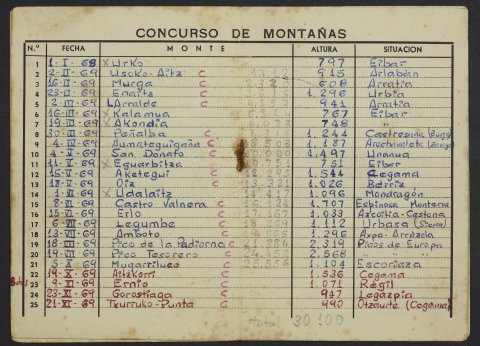 CONCURSO DE MONTAÑAS
N.º FECHA MONTE ALTURA SITUACION
1 1-I-68 X Urko 797 Eibar
2 2-II-69 Usoko-Aitz C 915 Arlabán
3 16-II-69 Murga C 608 Arratia
4 23-II-69 Enaitz C 1.296 Urbia
5 2-III-69 Larralde C 941 Arratia
6 16-III-69 X Kalamua 767 Eibar
7 19-III-69 X Akondia 748 "
8 30-III-69 Peñalba C 1.244 Castresana
9 4-IV-69 Aumategigaña C 1.187 Arechavaleta
10 4-V-69 San Donato C 1.497 Unanua
11 11-V-69 X Eguarbitza 751 Eiber
12 15-V-69 Aketegui C 1.544 Cegama
13 18-V-69 Oiz C 1.026
14 1-VI-69 X Udalaitz 1.096 Mondragón
15 8-VI-69 Castro Valnera C 1.707 Espinosa Monteros
16 15-VI-69 Erlo C 1.033 Azcoitia-Cestona
17 6-VII-69 Legumbe C 1.112 Urbasa
18 13-VII-69 Amboto C 1.296 Axpe-Arrazola
19 18-VII-69 Pico de la Padiorna C 2.319 Picos de Europa
20 19-VII-69 Pico Tesorero C 2.568 " "
21 5-X-69 Mugarriluce C 1.104 Escoriaza
22 19-X-69 Aitzkorri C 1.536 Cegama
23 9-XI-69 Ernio C 1.071 Régil
24 23-XI-69 Gorostiaga C 947 Legazpia
25 21-XI-69 Txurruko-Punta C 990 Otzaurte (Cegama)
Total 30.100